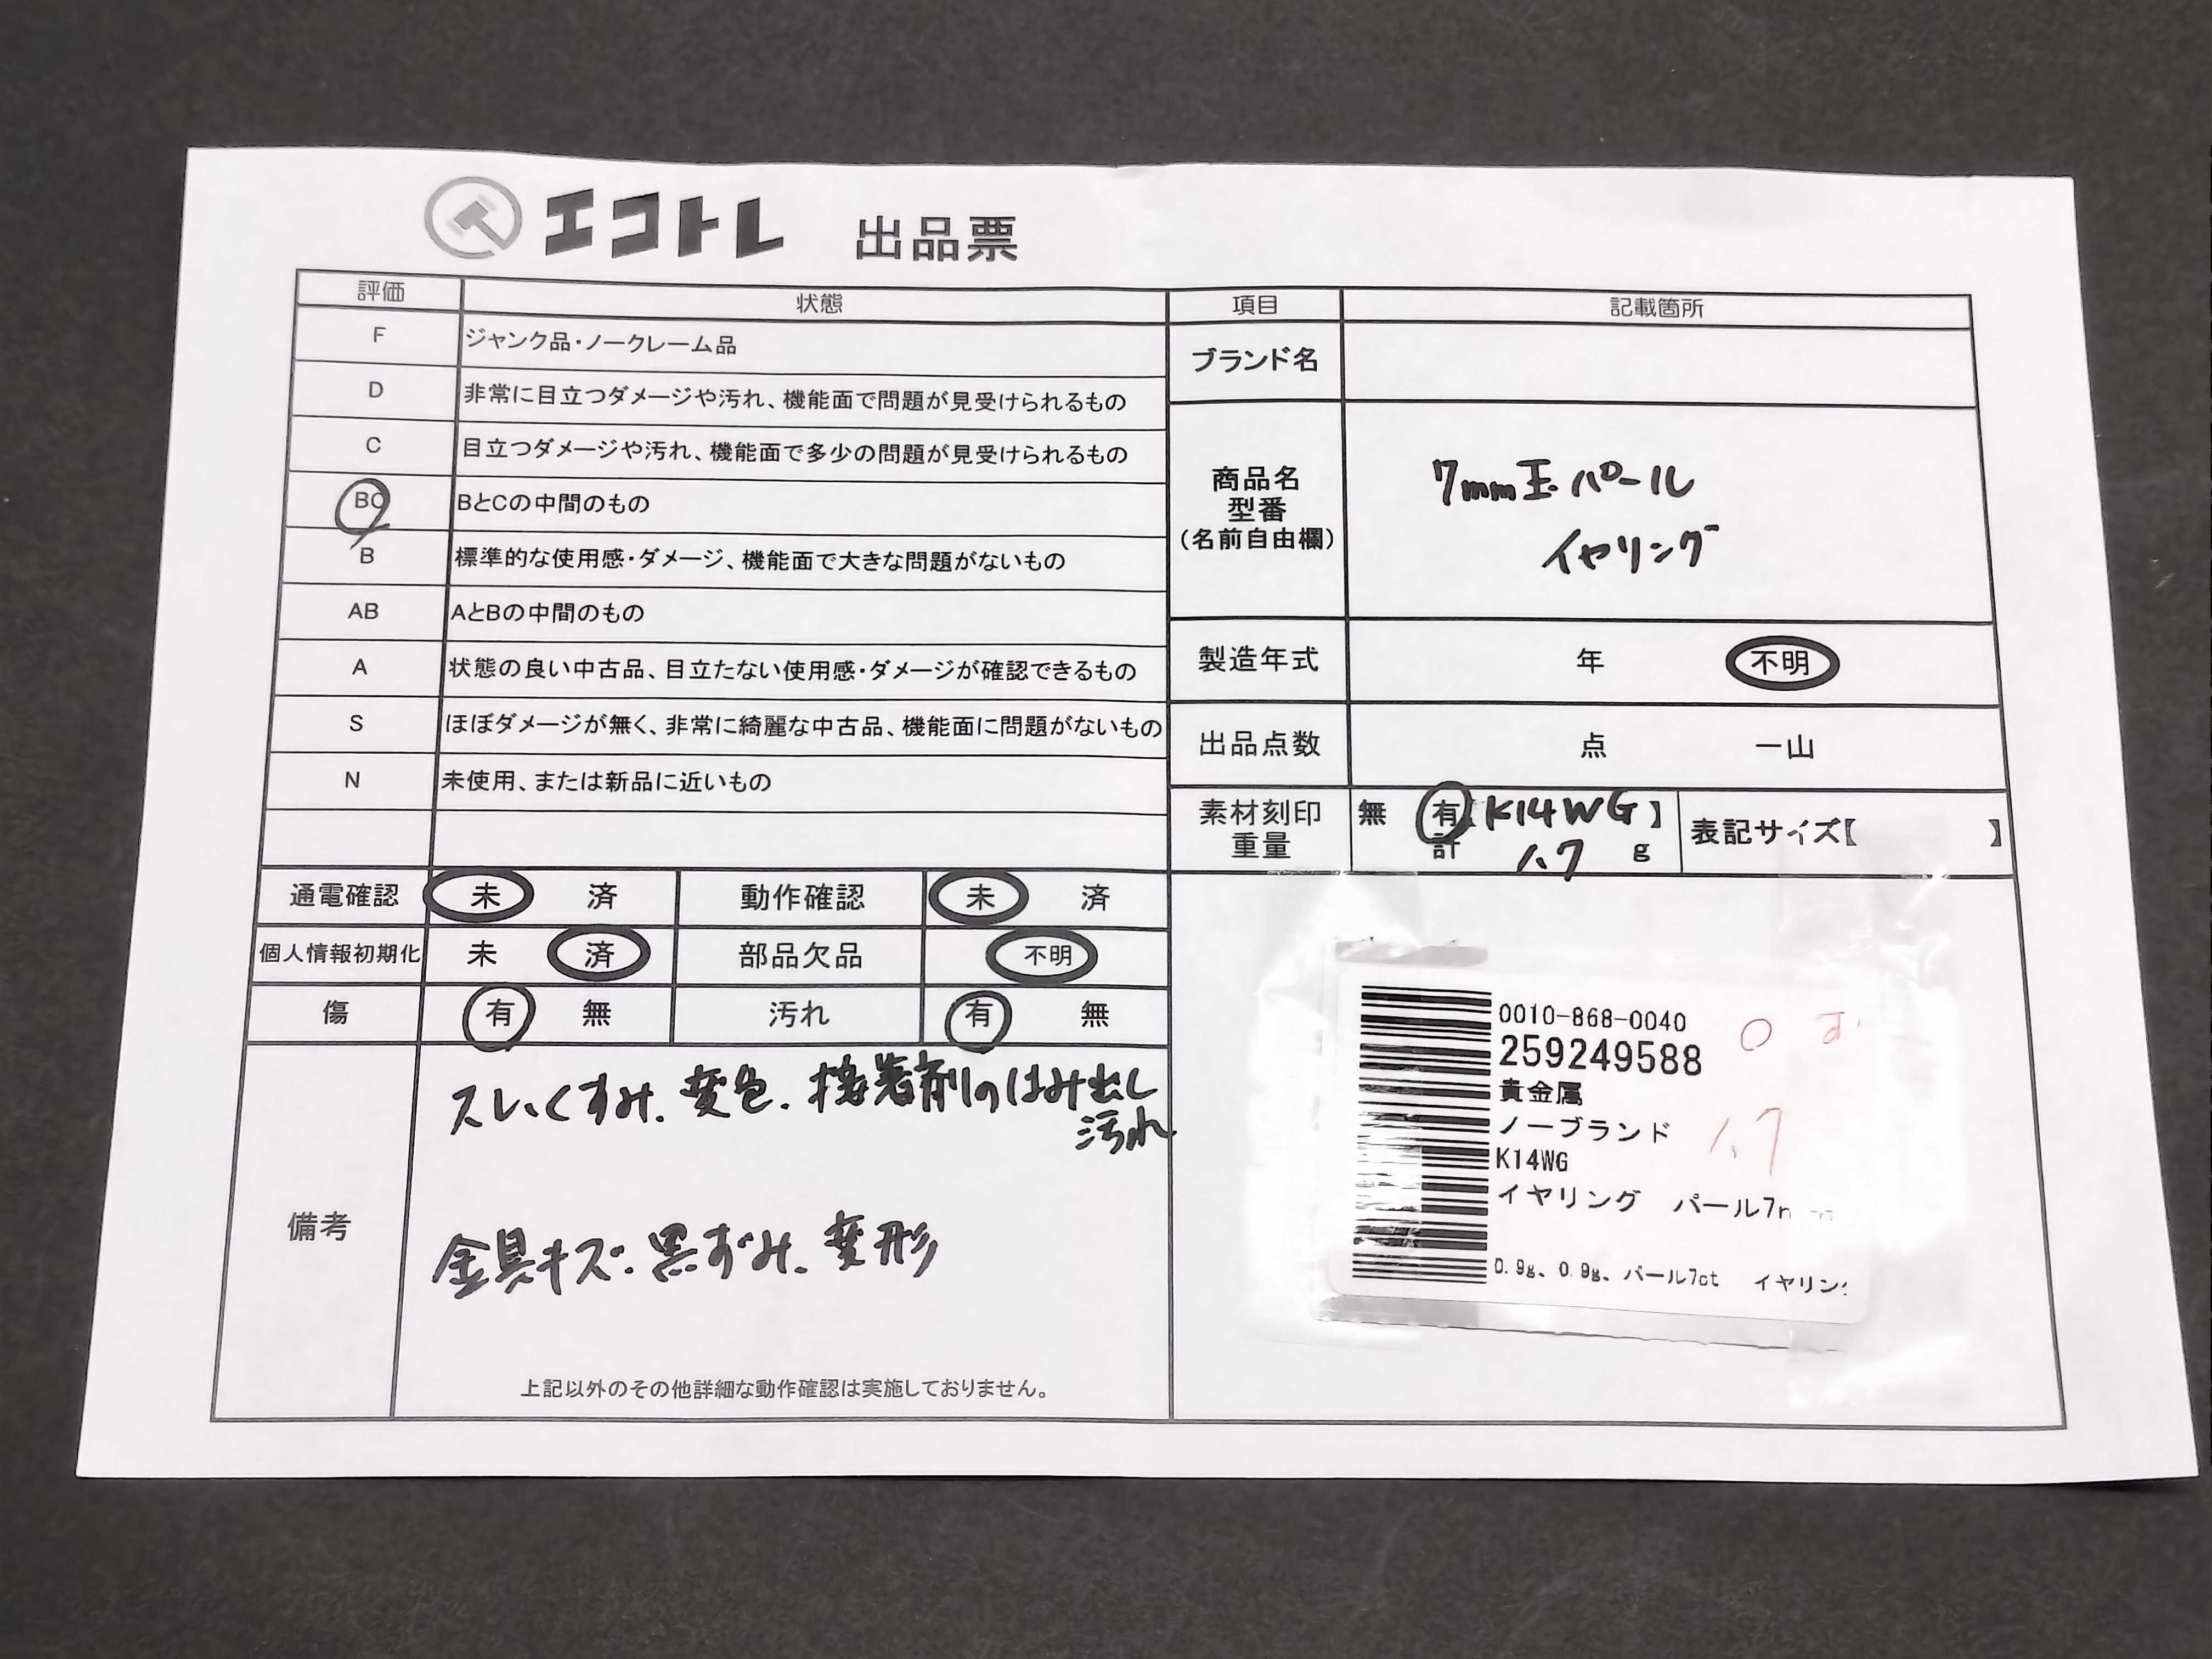 エコトレ 出品票
評価 状態
F ジャンク品・ノークレーム品
D 非常に目立つダメージや汚れ、機能面で問題が見受けられるもの
C 目立つダメージや汚れ、機能面で多少の問題が見受けられるもの
BC BとCの中間のもの
B 標準的な使用感・ダメージ、機能面で大きな問題がないもの
AB AとBの中間のもの
A 状態の良い中古品、目立たない使用感・ダメージが確認できるもの
S ほぼダメージが無く、非常に綺麗な中古品、機能面に問題がないもの
N 未使用、または新品に近いもの
通電確認 未 済 動作確認 未 済
個人情報初期化 未 済 部品欠品 不明
傷 有 無 汚れ 有 無
備考
スレ、くすみ、変色、接着剤のはみ出し
汚れ
金具キズ、黒ずみ、変形
上記以外のその他詳細な動作確認は実施しておりません。
項目 記載箇所
ブランド名
商品名
型番
(名前自由欄)
7mm玉パール
イヤリング
製造年式 年 不明
出品点数 点 一山
素材刻印
重量
無 有【K14WG】
計 1.7 g
表記サイズ【 】
0010-868-0040
259249588
貴金属
ノーブランド 1.7
K14WG
イヤリング パール7m
0.9g、0.9g、パール7ct イヤリン